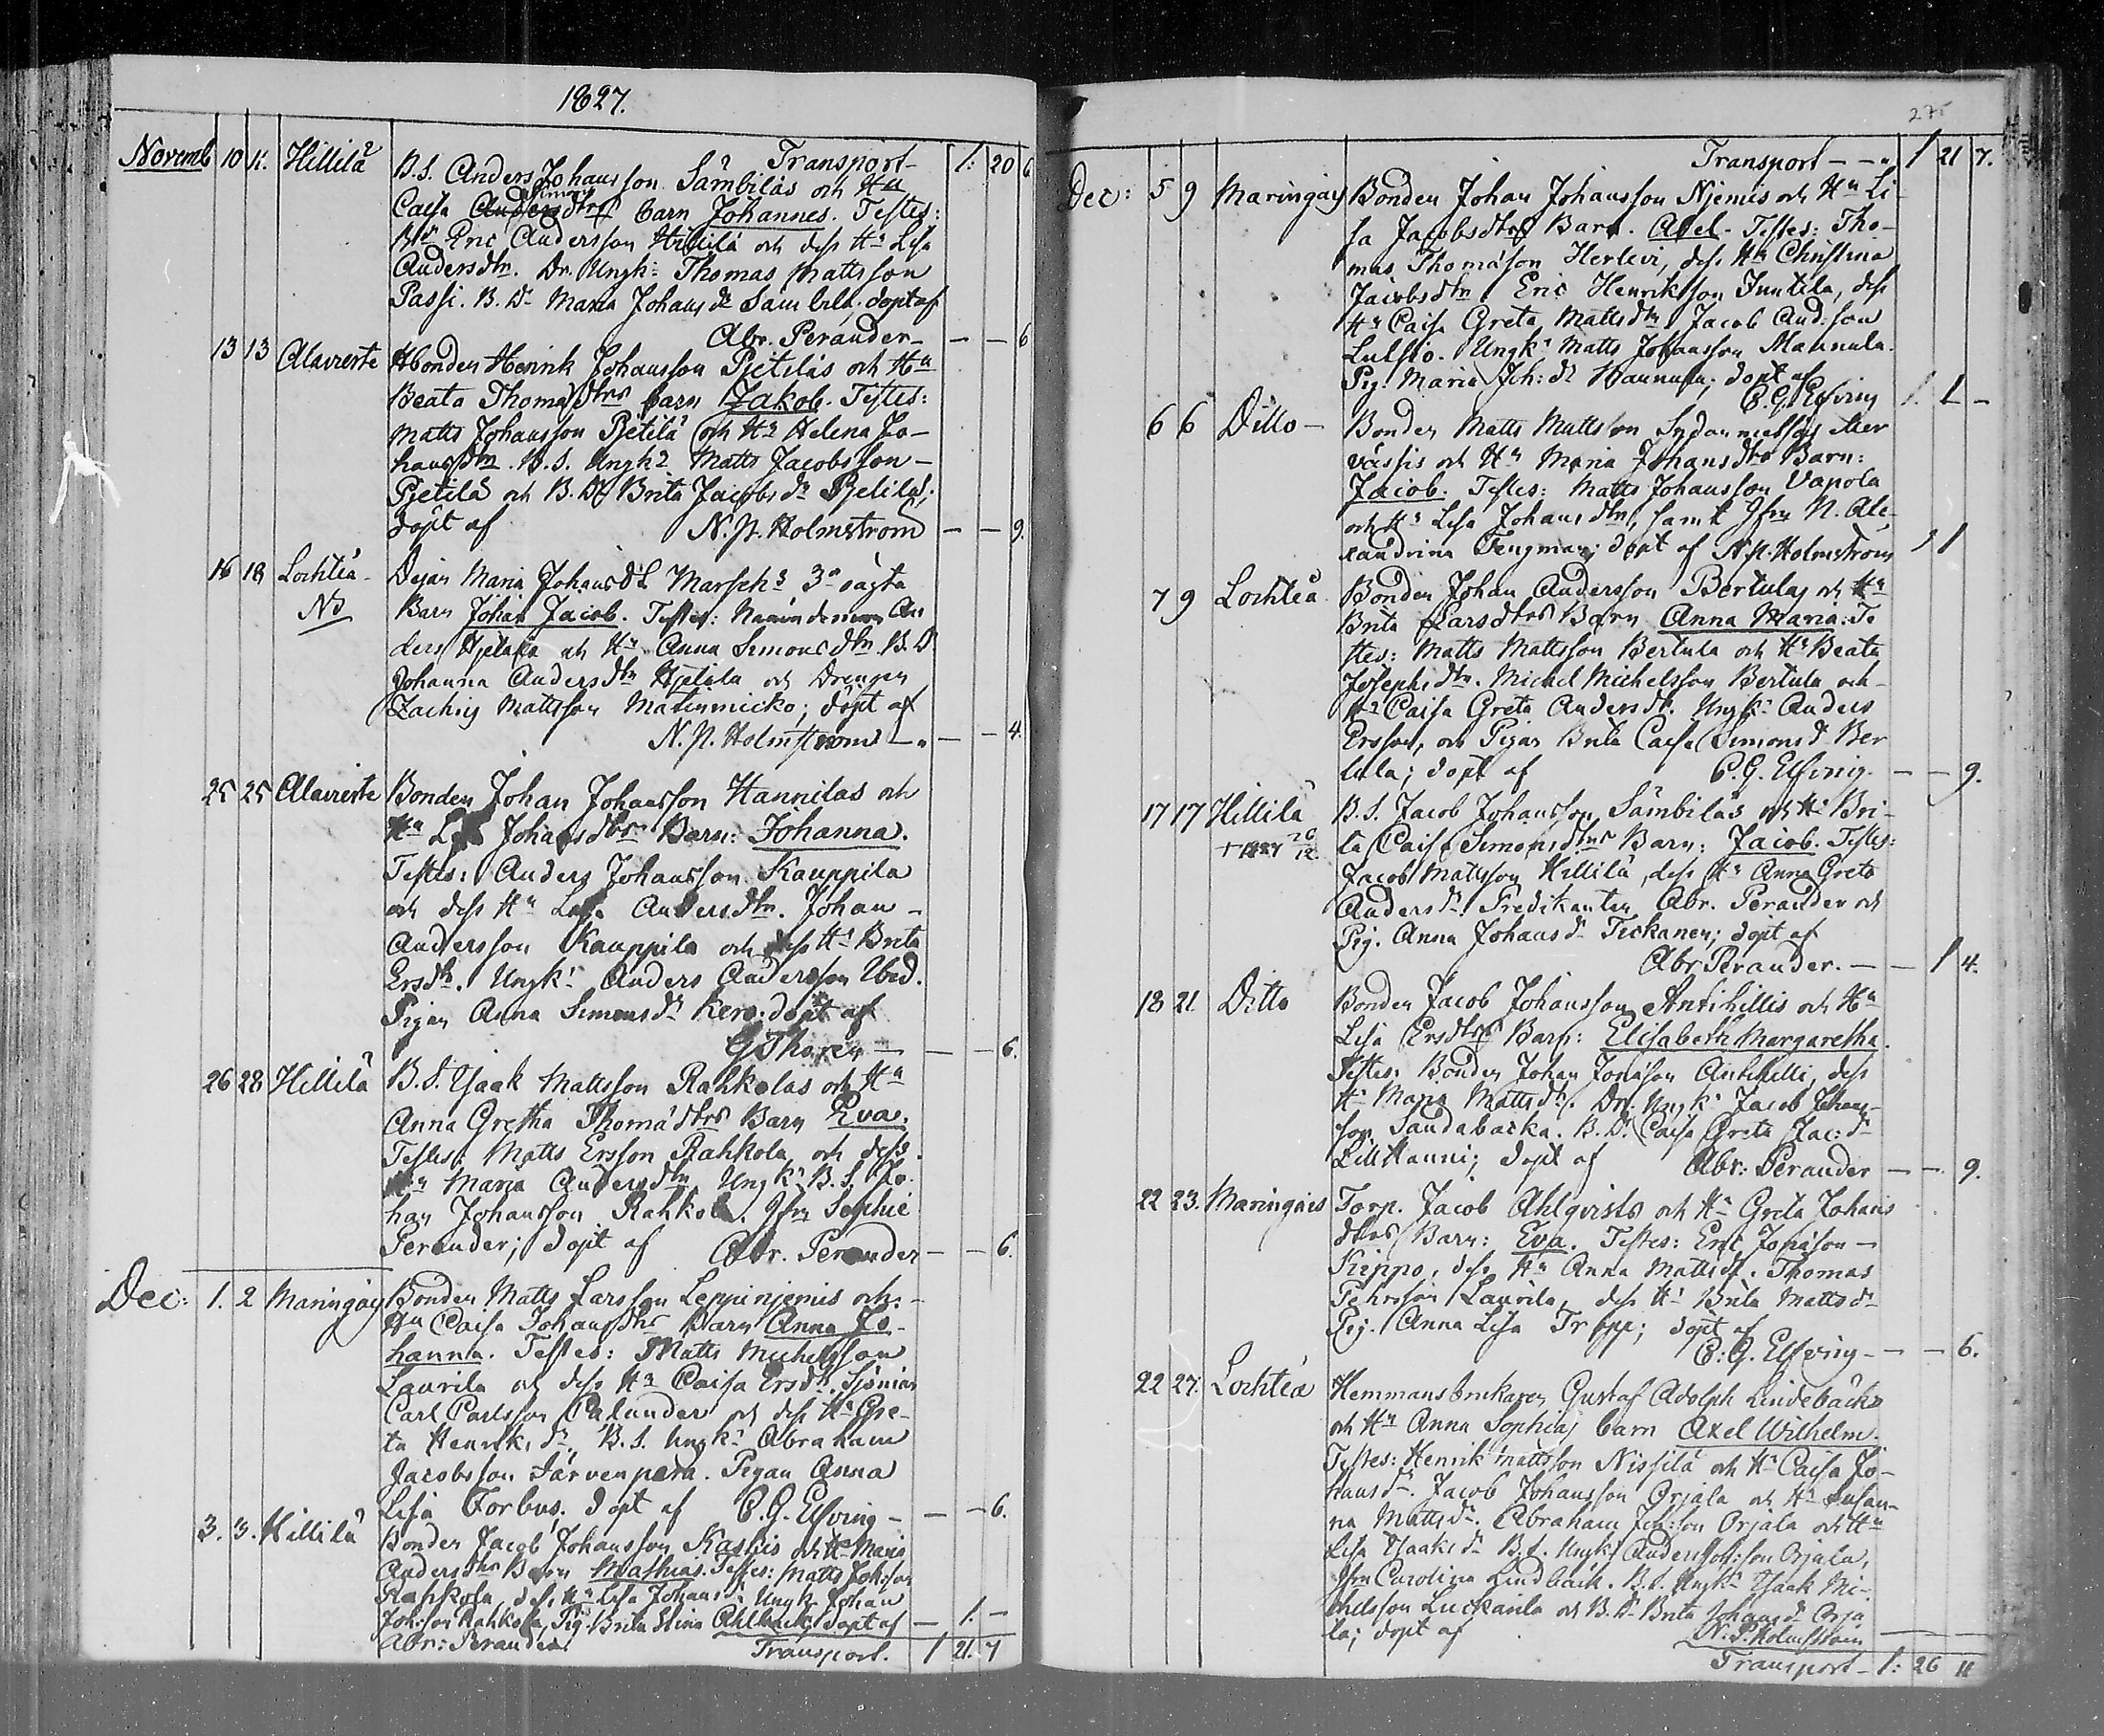 1827.
Transport 1: 20 6
Novemb 10 11. Hillilä B.S. Anders Johansson Sämbiläs och Hu
Caisa Simonsdtrs barn Johannes. Testes:
Eric Andersson Hillilä och dess Hu Lisa
Andersdtr. Dr. Ungk: Thomas Mattsson
Passi. B. Dr Maria Johansdr Sämbilä. döpt af
Abr. Perander — — 6
13 13 Alaveste Bonden Henrik Johansson Pjetiläs och Hu
Beata Thomædtrs barn Jakob. Testes:
Matts Johansson Pjetilä och Hu Helena Jo-
hansdtr. B. S. Ungk: Matts Jacobsson
Pjetilä och B. Dr Brita Jacobsdr Pjetilä;
döpt af N. P. Holmström — — 9.
16 18 Lochteå Maria Johansdr 3:
No Barn Johan Jacob. Testes: Nämndeman An
ders Hjelala och Hu Anna Simonsdtr. B. D
Johanna Andersdtr och Drengen
Zachris Mattsson; döpt af
N. P. Holmström — — 4.
25 25 Alaveste Bonden Johan Johansson Hannilas och
Hu Lisa Johansdtrs Barn: Johanna.
Testes: Anders Johansson Kauppila
och dess Hu Lisa Andersdtr. Johan
Andersson Kauppila och dess Hu Brita
Ersdtr. Ungk: Anders Andersson Ibid.
Pigan Anna Simonsdr Kero. döpt af
G Thoren — — 6.
26 28 Hillilä B. S. Isaak Mattsson Rahkolas och Hu
Anna Gretha Thomædtrs Barn Eva;
Testes: Matts Ersson Rahkola och dess
Hu Maria Andersdtr, Ungk: B. S. Jo-
han Johansson Rahkola. Jfru Sophie
Perander; döpt af Abr. Perander — — 6.
Dec: 1. 2 Maringais Bonden Matts Larsson Leppinjemis och
Hu Caisa Johansdtrs Barn Anna Jo-
hanna. Testes: Matts Michelsson
Laurila och dess Hu Caisa Ersdr. Sjöman
Carl Carlsson Calander och dess Hu Gre-
ta Henriksdr. B. S. Ungk: Abraham
Jacobsson Järvenpera. Pigan Anna
Lisa Forbus. döpt af C. G. Elfving — — 6.
3. 3. Hillilä Bonden Jacob Johansson Kaskis och Hu Maria
Andersdtrs Barn Mathias. Testes: Matts Joh:son
Rahkola, dess Hu Lisa Johansdr Ungk Johan
Joh:son Rahkola, Pig. Brita Stina Ahlbäck; döpt af — 1. —
Abr: Perander.
Transport. 1 21. 7
275
Transport — — 1 21 7.
Dec: 5 9 Maringais Bonden Johan Johansson Njemis och Hu Li-
sa Jacobsdtrs Barn. Axel. Testes: Tho-
mas Thomasson Herlevi, dess Hu Christina
Jacobsdtr Eric Henriksson Juntila, dess
Hu Caisa Greta Mattsdtr Jacob And:son
Ungk: Matts Johansson Mannula.
Pig. Maria Joh:dr Mannula; döpt af
C. G. Elfving 1. —
6 6 Ditto — Bonden Matts Mattsson
och Hu Maria Johansdtrs Barn:
Jacob. Testes: Matts Johansson Vapola
och Hu Lisa Johansdtr, samt Jfru N. Ale-
xandrina Tengman; döpt af N. P. Holmström 1
7 9 Lochteå Bonden Johan Andersson Bertulas och Hu
Brita Larsdtrs Barn Anna Maria. Te
stes: Matts Mattsson Bertula och Hu Beata
Josephsdtr. Michel Michelsson Bertula och
Hu Caisa Greta Andersdr. Ungk: Anders
Ersson, och Pigan Brita Caisa Simonsd Ber
tula; döpt af C. G. Elfving. — — 9.
17 17 Hillilä B. S. Jacob Johansson Sämbiläs och Hu Bri-
† 1827 26/12. ta Caisa Simonsdtrs Barn: Jacob. Testes:
Jacob Mattsson Hillilä, dess Hu Anna Greta
Andersdr. Predikanten Abr. Perander och
Pig. Anna Johansdr Tickanen; döpt af
Abr Perander. — 1 4.
18 21 Ditto Bonden Jacob Johansson Antihillis och Hu
Lisa Ersdtrs Barn: Elisabeth Margaretha.
Testes: Bonden Johan Jonasson Antihilli, dess
Hu Maria Mattsdr. Dr. Ungk: Jacob Johans-
son Sandabacka. B. Dr. Caisa Greta Jac:dr
Lill Hanni; döpt af Abr: Perander — — 9.
22 23. Maringais Torp. Jacob Ahlqvists och Hu Greta Johans
dtrs Barn: Eva. Testes: Eric Jonasson
Kippo, dess Hu Anna Mattsdr. Thomas
Pehrsson Laurila, dess Hu Brita Mattsdr
Pig. Anna Lisa Trapp; döpt af
C. G. Elfving — — 6.
22 27. Lochteå Hemmansbrukaren Gustaf Adolph Lindebäcks
och Hu Anna Sophias barn Axel Wilhelm.
Testes: Henrik Mattsson Nissilä och Hu Caisa Jo-
hansdr. Jacob Johansson Orjala och Hu Susan-
na Mattsdr. Abraham Joh:son Orjala och Hu
Lisa Isaaksdr B. S. Ungk: Anders Joh:son Orjala,
Jfru Carolina Lindbäck. B. S. Ungk: Isaak Mi-
chelsson Luckarila och B. Dr Brita Johansdr Orja
la; döpt af N. P. Holmström — —
Transport — 1: 26 11